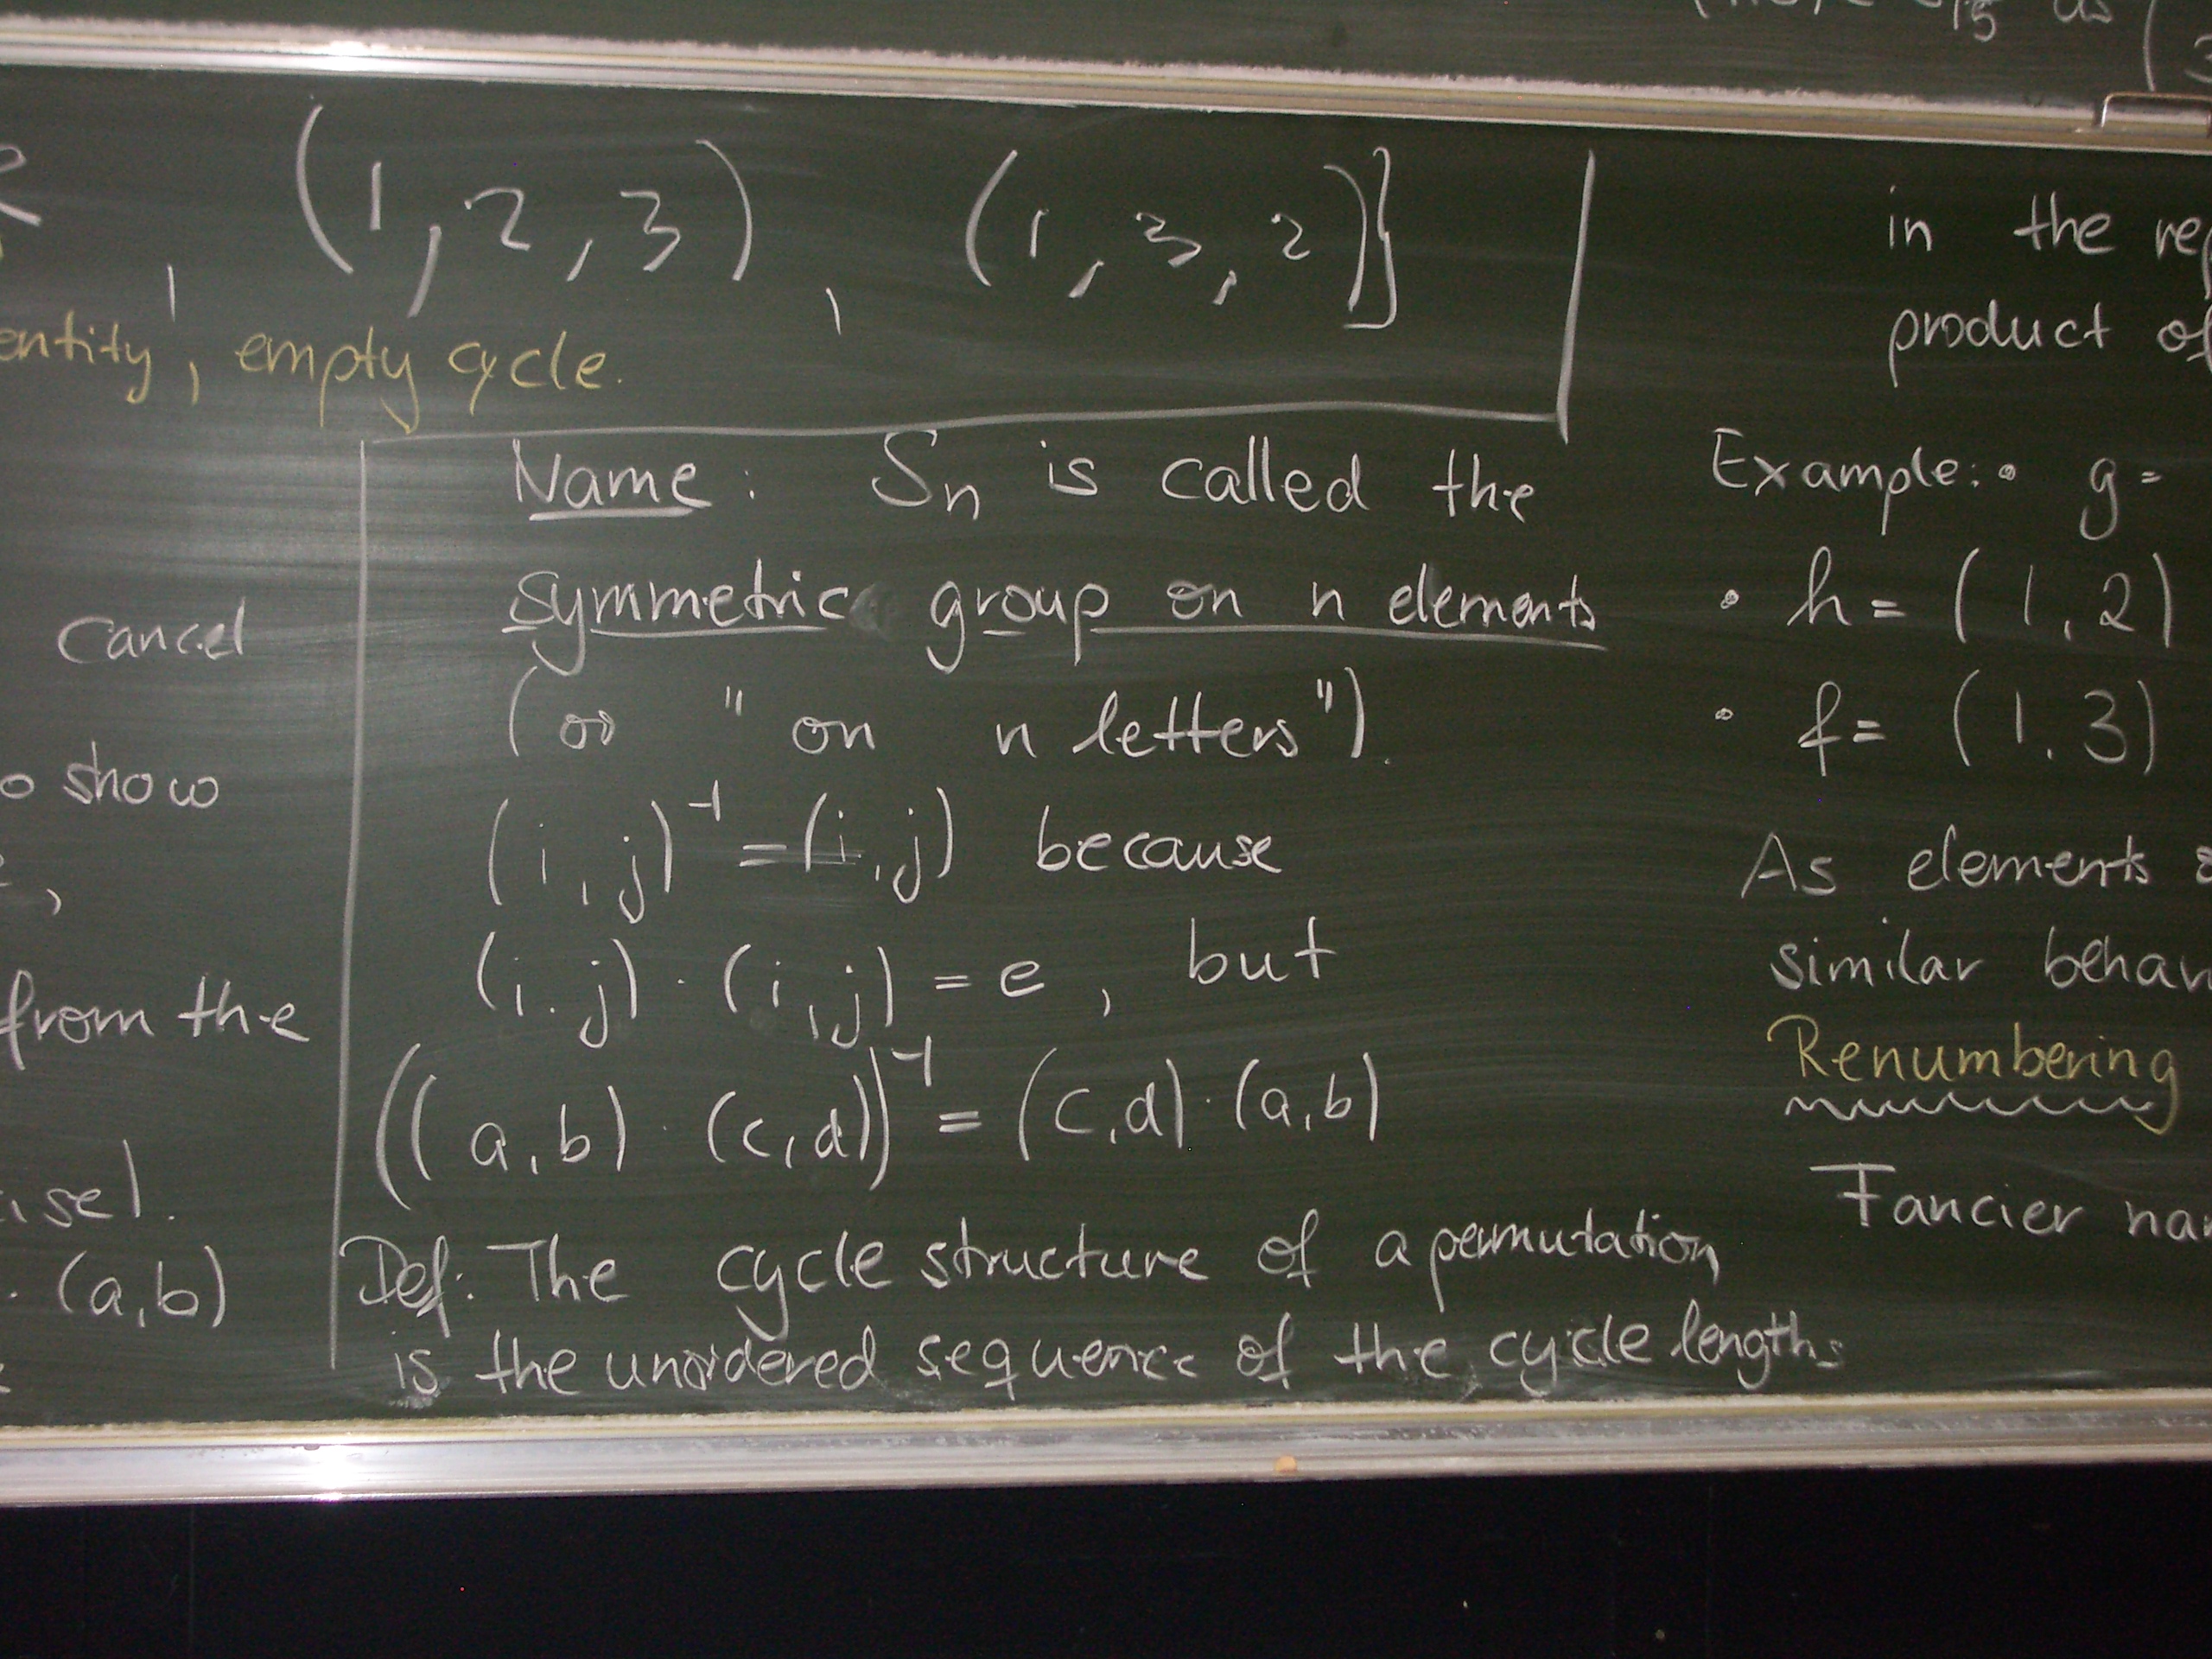 (1, 2, 3), (1, 3, 2)}
entity, empty cycle.
Name: Sn is called the
symmetric group on n elements
(or "on n letters").
(i, j)⁻¹ = (i, j) because
(i, j) · (i, j) = e, but
((a, b) · (c, d))⁻¹ = (c, d) · (a, b)
Def: The cycle structure of a permutation
is the unordered sequence of the cycle lengths
cancel
o show
from the
ise).
· (a, b)
as (
in the
product of
Example: • g =
• h = (1, 2)
• f = (1, 3)
As elements
similar behav
Renumbering
Fancier na